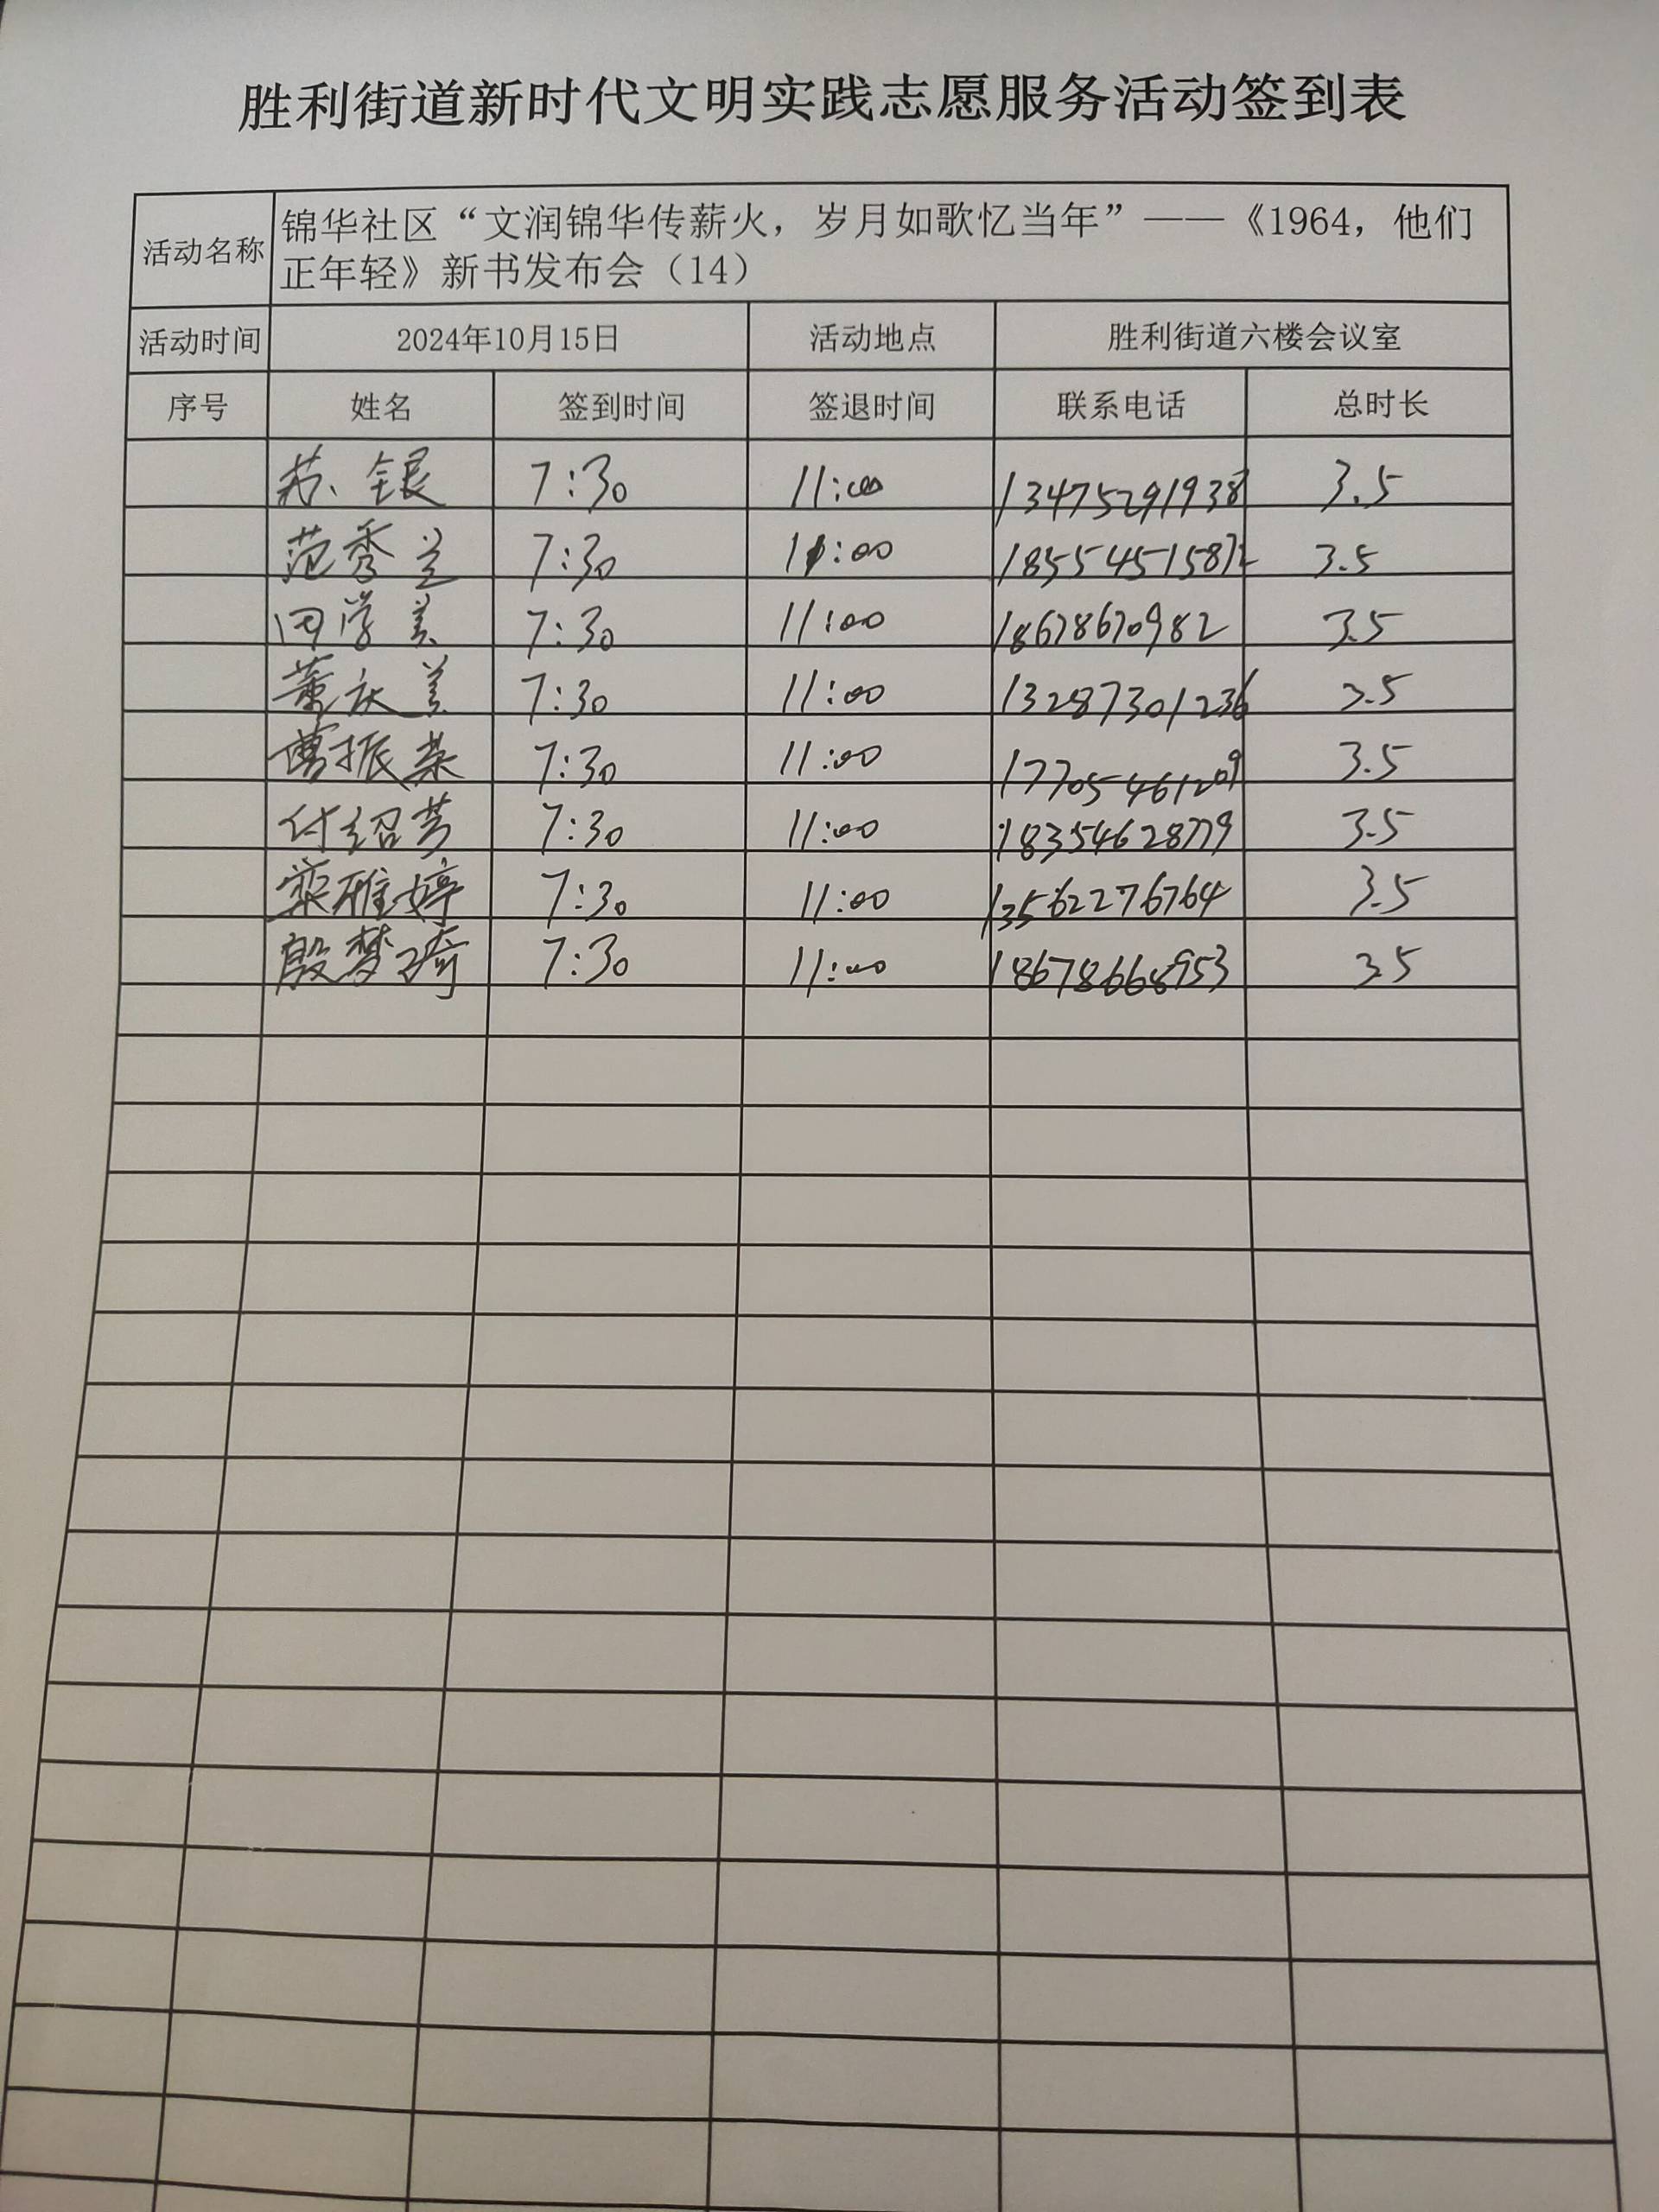 胜利街道新时代文明实践志愿服务活动签到表
活动名称 锦华社区“文润锦华传薪火，岁月如歌忆当年”——《1964，他们
正年轻》新书发布会（14）
活动时间 2024年10月15日 活动地点 胜利街道六楼会议室
序号 姓名 签到时间 签退时间 联系电话 总时长
苏银 7:30 11:00 13475291938 3.5
范秀兰 7:30 11:00 18554515872 3.5
田学美 7:30 11:00 18678670982 3.5
董庆美 7:30 11:00 13287301236 3.5
曹振荣 7:30 11:00 17705461209 3.5
付绍芳 7:30 11:00 18354628779 3.5
雅婷 7:30 11:00 13562276764 3.5
殷梦琦 7:30 11:00 18678668953 3.5